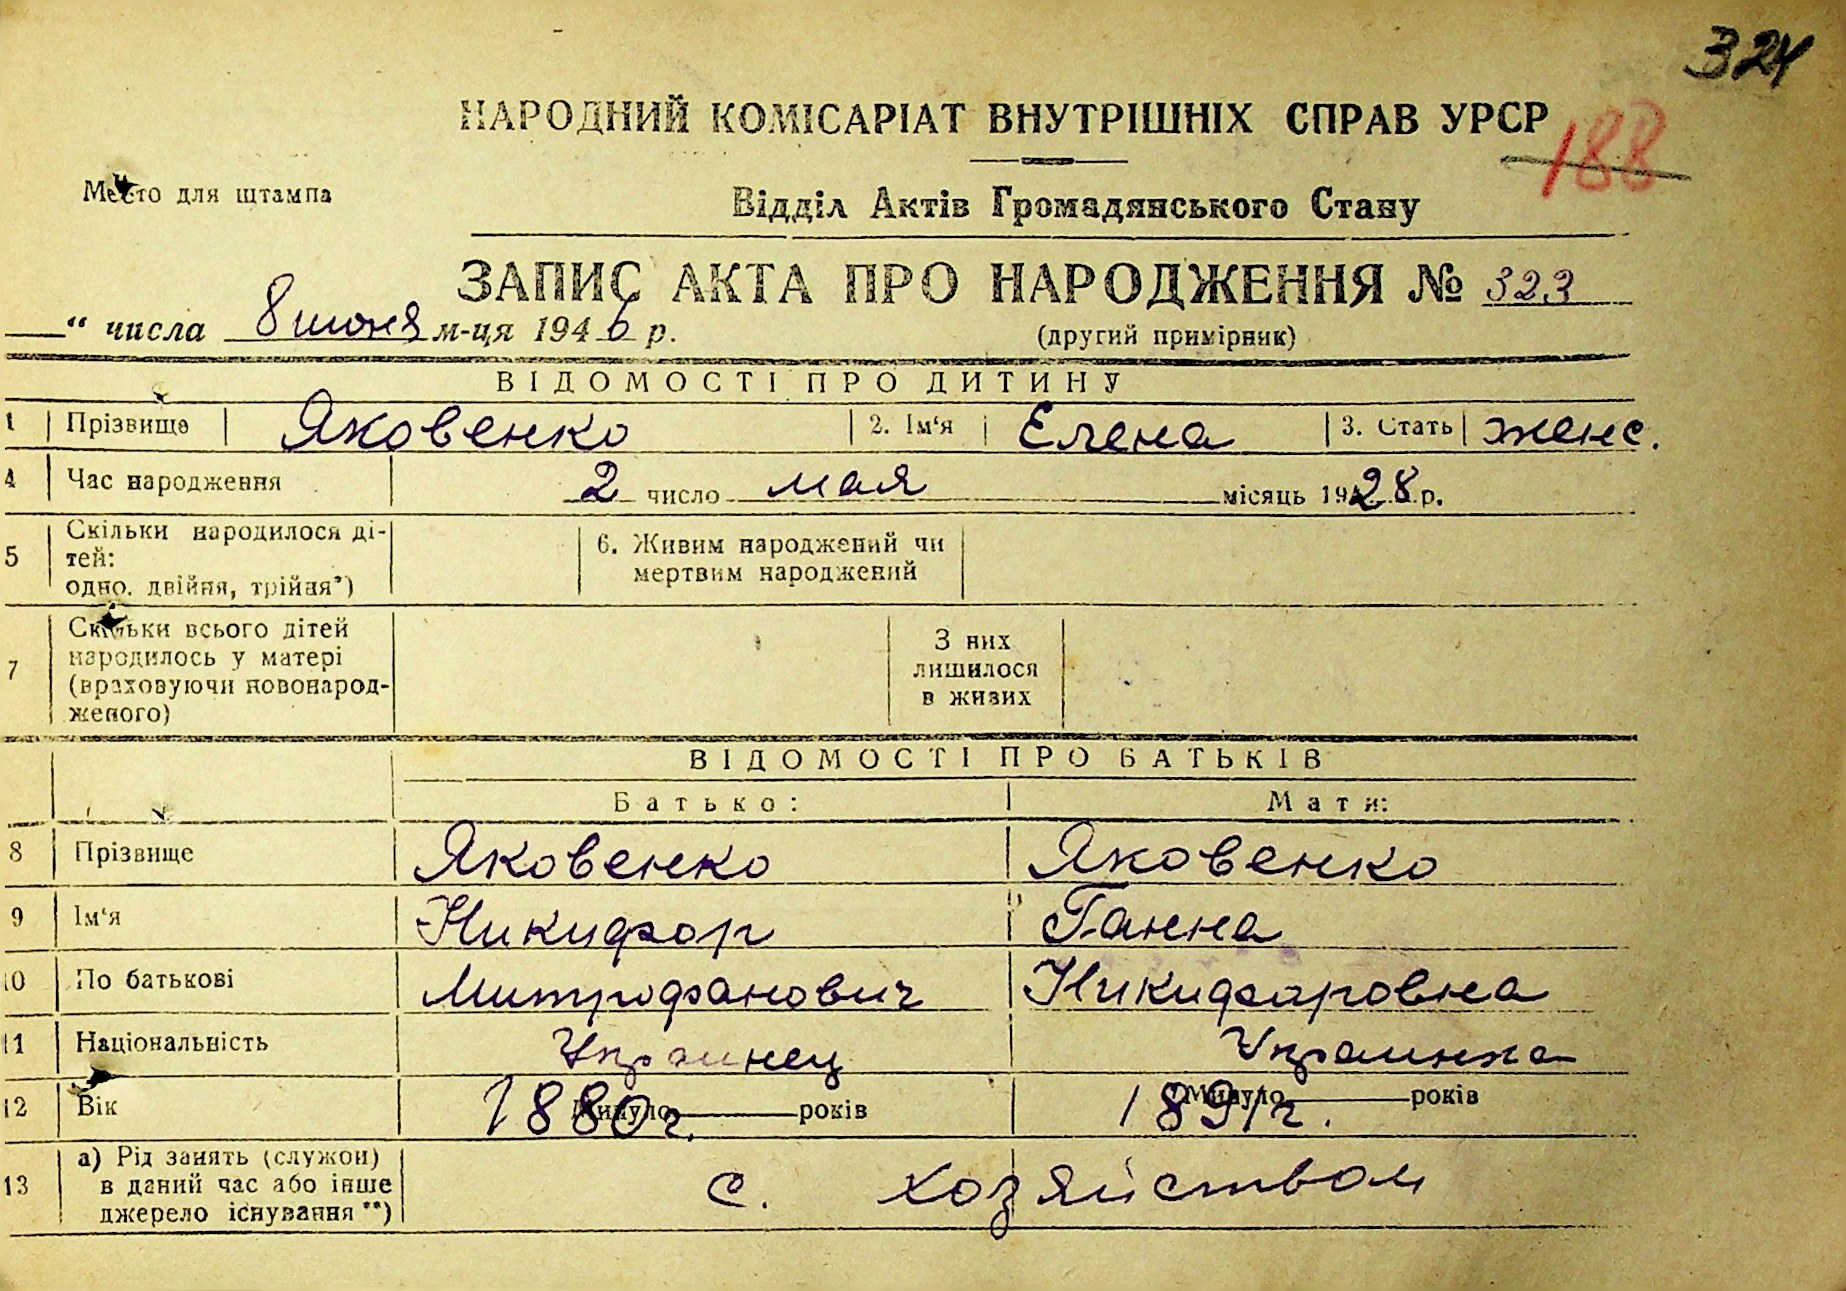 324
НАРОДНИЙ КОМІСАРІАТ ВНУТРІШНІХ СПРАВ УРСР
188
Место для штампа
Відділ Актів Громадянського Стану
ЗАПИС АКТА ПРО НАРОДЖЕННЯ № 323
“ числа 8 июня м-ця 1946 р.
(другий примірник)
ВІДОМОСТІ ПРО ДИТИНУ
1 Прізвище Яковенко 2. Ім‘я Елена 3. Стать женс.
4 Час народження 2 число мая місяць 1928 р.
5 Скільки народилося ді-
тей:
одно, двійня, трійня*)
6. Живим народжений чи
мертвим народжений
7 Скільки всього дітей
народилось у матері
(враховуючи новонарод-
женого)
З них
лишилося
в живих
ВІДОМОСТІ ПРО БАТЬКІВ
Батько: Мати:
8 Прізвище Яковенко Яковенко
9 Ім‘я Никифор Ганна
10 По батькові Митрофанович Никифоровна
11 Національність Украинец Украинка
12 Вік Минуло 1880 г. років Минуло 1891 г. років
13 а) Рід занять (служби)
в даний час або інше
джерело існування **)
с. хозяйством